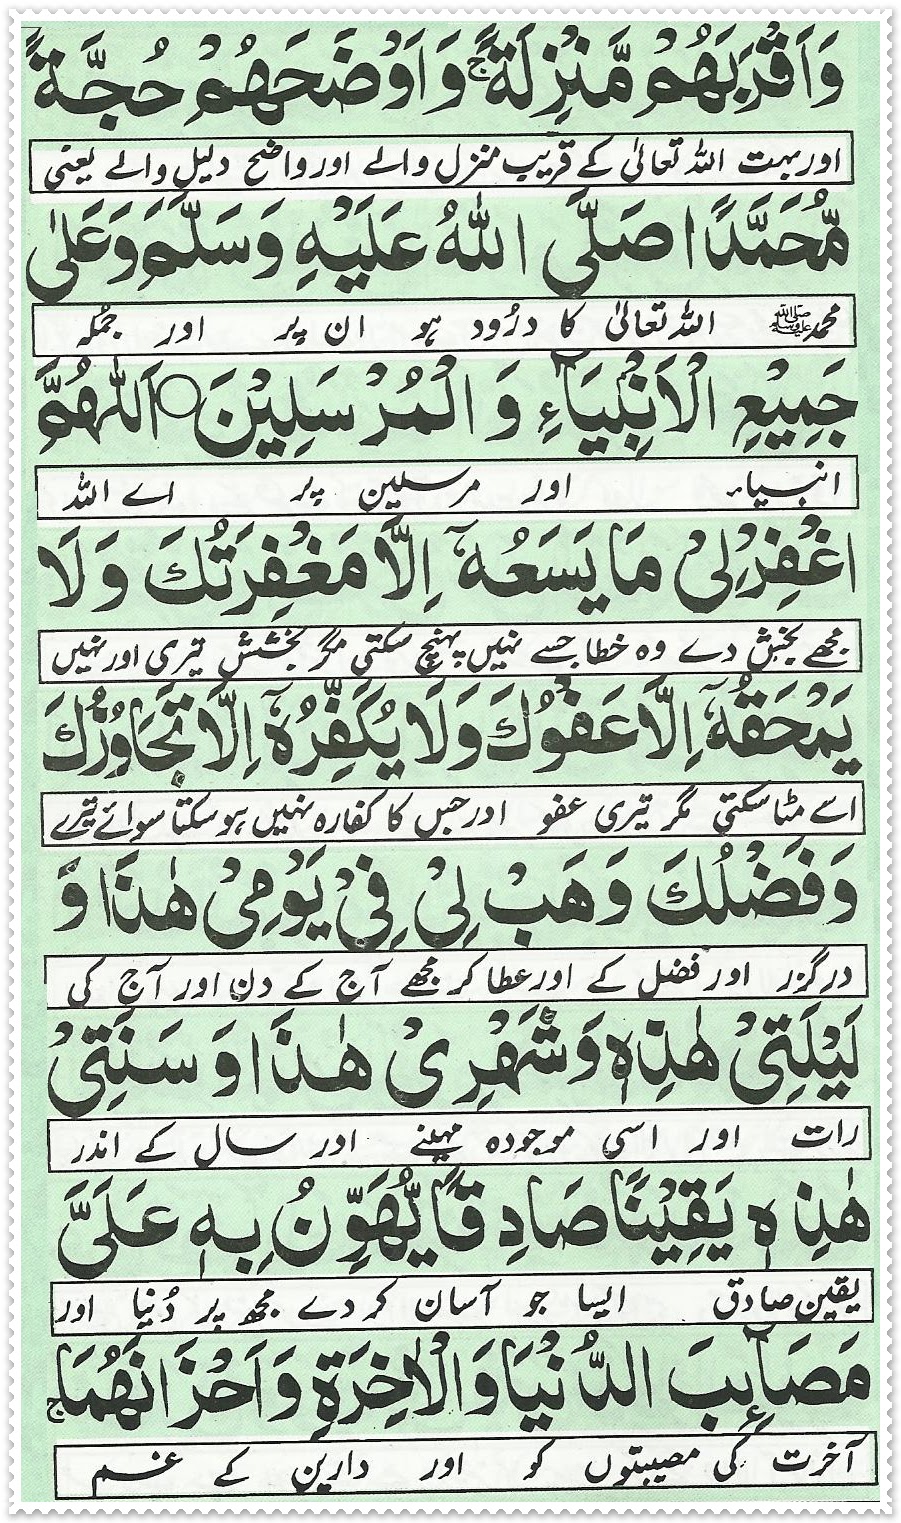 وَاَقْرَبَهُمْ مَّنْزِلَةً ج وَاَوْضَحَهُمْ حُجَّةً
اور بہت اللہ تعالیٰ کے قریب منزل والے اور واضح دلیل والے یعنی
مُّحَمَّدًا صَلَّى اللّٰهُ عَلَيْهِ وَسَلَّمَ وَعَلٰى
محمد ﷺ اللہ تعالیٰ کا درُود ہو ان پر اور جملہ
جَمِيْعِ الْاَنْۢبِيَآءِ وَ الْمُرْسَلِيْنَ ○ اَللّٰهُمَّ
انبیاء اور مرسلین پر اے اللہ
اغْفِرْلِىْ مَا يَسَعُهٗٓ اِلَّا مَغْفِرَتُكَ وَلَا
مجھے بخش دے وہ خطا جسے نہیں پہنچ سکتی مگر بخشش تیری اور نہیں
يَمْحَقُهٗٓ اِلَّا عَفْوُكَ وَلَا يُكَفِّرُهٗٓ اِلَّا تَجَاوُزُكَ
اے مٹا سکتی مگر تیری عفو اور جس کا کفارہ نہیں ہو سکتا سوائے تیرے
وَفَضْلُكَ وَهَبْ لِىْ فِىْ يَوْمِىْ هٰذَا وَ
درگزر اور فضل کے اور عطا کر مجھے آج کے دن اور آج کی
لَيْلَتِىْ هٰذِهٖ وَشَهْرِىْ هٰذَا وَ سَنَتِىْ
رات اور اسی موجودہ مہینے اور سال کے اندر
هٰذِهٖ يَقِيْنًا صَادِقًا يُّهَوِّنُ بِهٖ عَلَىَّ
یقین صادق ایسا جو آسان کر دے مجھ پر دُنیا اور
مَصَآئِبَ الدُّنْيَا وَالْاٰخِرَةِ وَاَحْزَانَهُمَا ج
آخرت کی مصیبتوں کو اور دارین کے غم